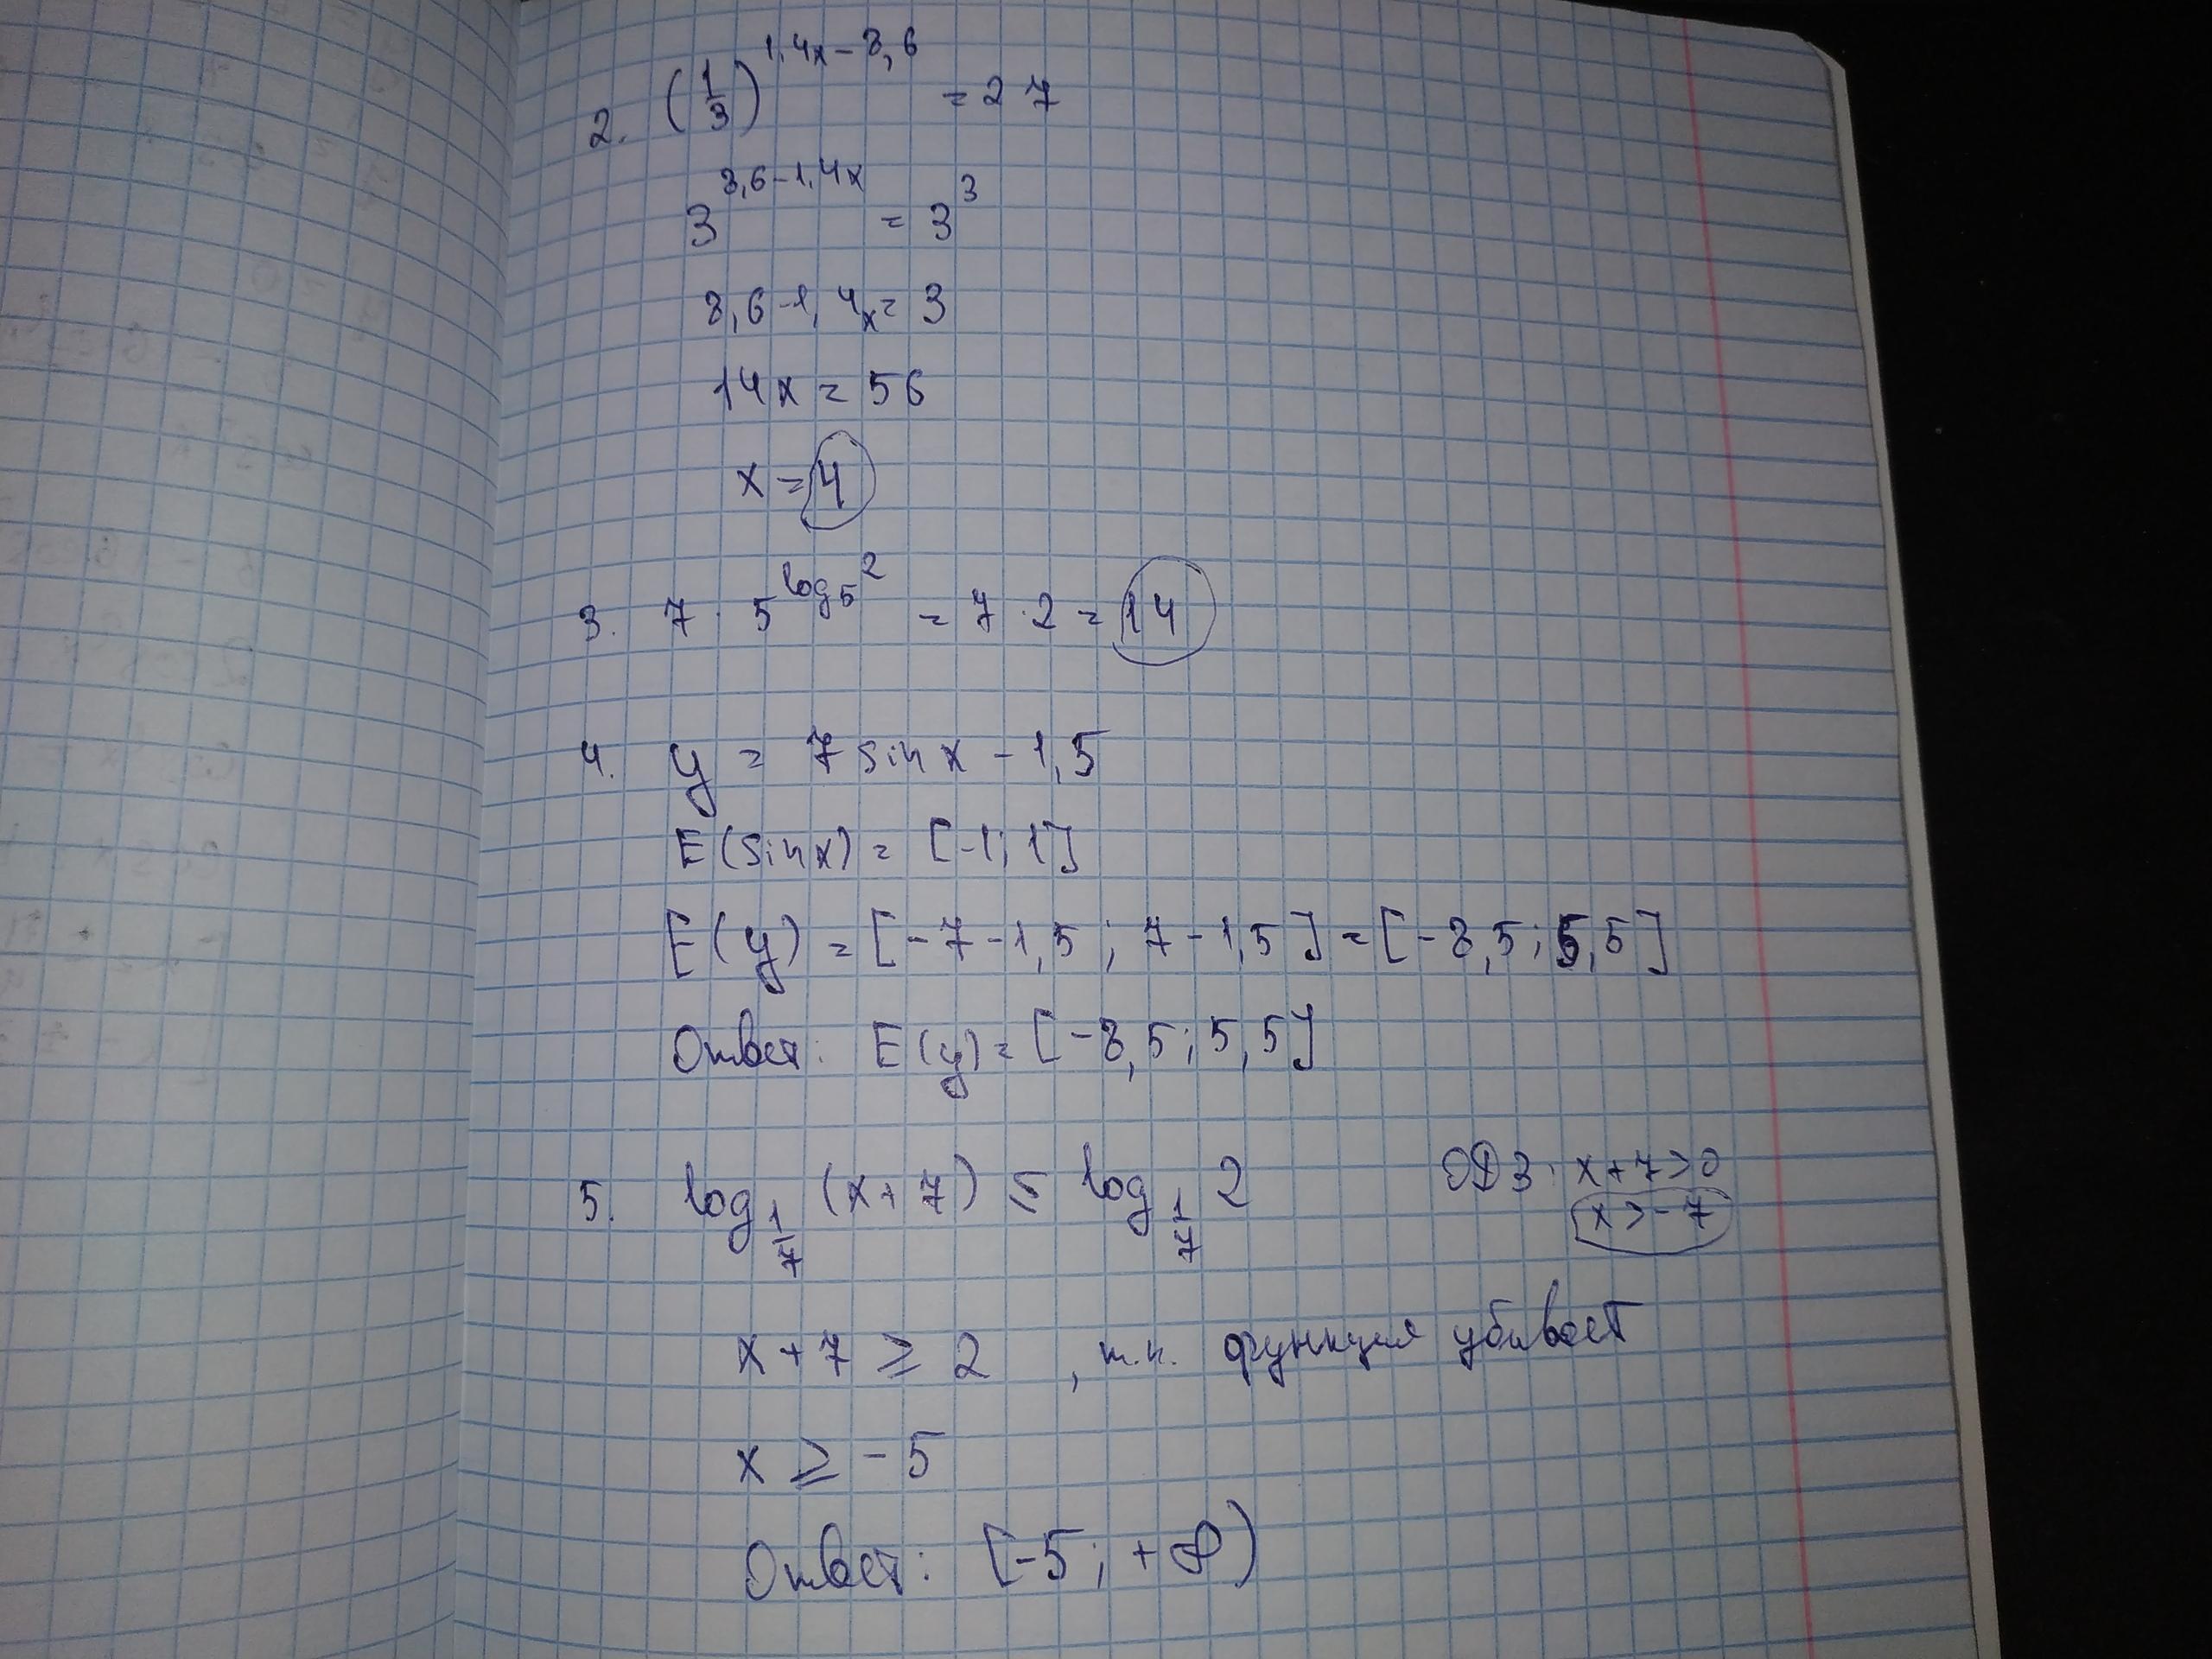 2. (1/3)^{1,4x-8,6} = 27
3^{8,6-1,4x} = 3^3
8,6-1,4x = 3
14x = 56
x = 4
3. 7 · 5^{log_5 2} = 7 · 2 = 14
4. y = 7 sin x - 1,5
E(sin x) = [-1; 1]
E(y) = [-7-1,5; 7-1,5] = [-8,5; 5,5]
Ответ: E(y) = [-8,5; 5,5]
5. log_{1/7} (x+7) ≤ log_{1/7} 2 ОДЗ: x+7>0
x>-7
x+7 ≥ 2, т.к. функция убывает
x ≥ -5
Ответ: [-5; +∞)